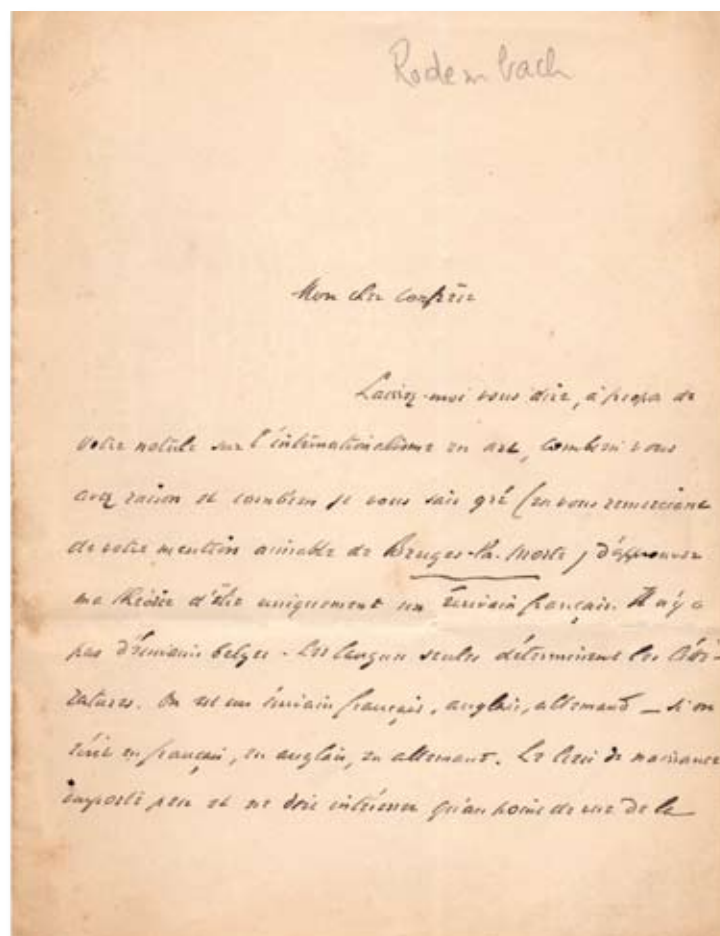 Rodenbach
Mon cher confrère
Laissez-moi vous dire, à propos de
votre notule sur l'internationalisme en art, combien vous
avez raison et combien je vous sais gré (en vous remerciant
de votre mention aimable de Bruges-la-Morte) d'approuver
ma théorie d'être uniquement un écrivain français. Il n'y a
pas d'écrivains belges - Les langues seules déterminent les litté-
ratures. On est un écrivain français, anglais, allemand _ si on
écrit en français, en anglais, en allemand. Le lieu de naissance
importe peu et ne doit intéresser qu'au point de vue de la